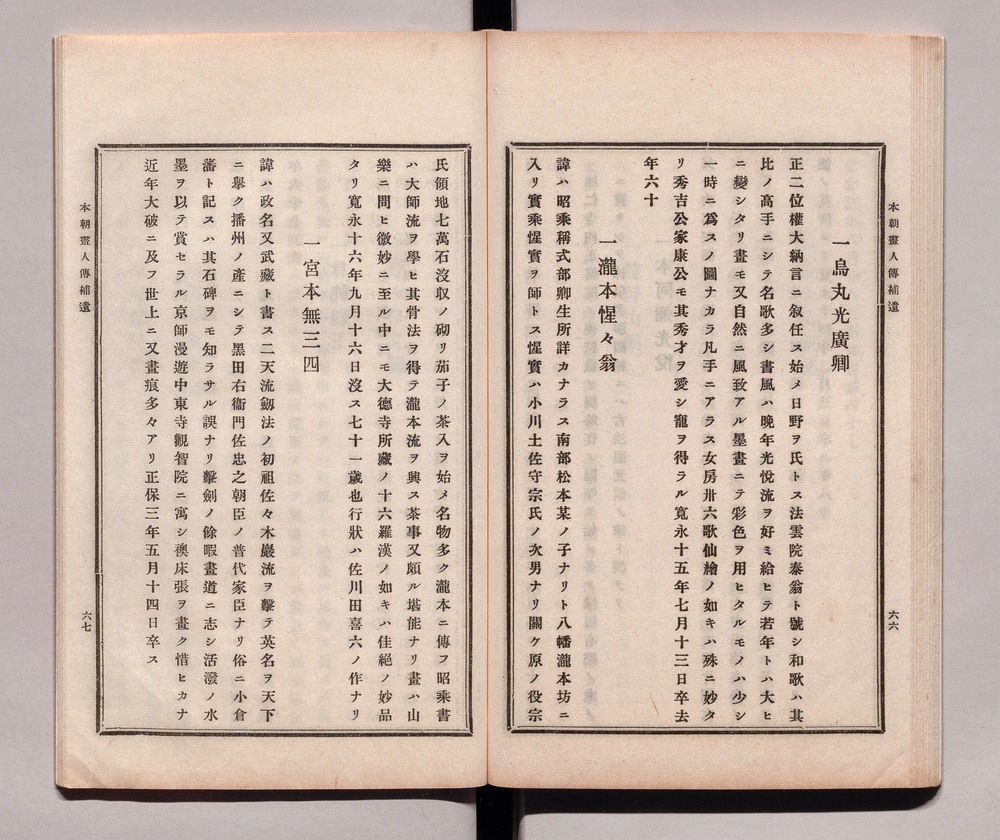 本朝畫人傳補遺
六六
一烏丸光廣卿
正二位權大納言ニ叙任ス始メ日野ヲ氏トス法雲院泰翁ト號シ和歌ハ其
比ノ高手ニシテ名歌多シ書風ハ晩年光悅流ヲ好ミ給ヒテ若年トハ大ヒ
ニ變シタリ畫モ又自然ニ風致アル墨畫ニテ彩色ヲ用ヒタルモノハ少シ
一時ニ爲スノ圖ナカラ凡手ニアラス女房卅六歌仙繪ノ如キハ殊ニ妙タ
リ秀吉公家康公モ其秀才ヲ愛シ寵ヲ得ラル寛永十五年七月十三日卒去
年六十
一瀧本惺々翁
諱ハ昭乘稱式部卿生所詳カナラス南部松本某ノ子ナリト八幡瀧本坊ニ
入リ實乘惺實ヲ師トス惺實ハ小川土佐守宗氏ノ次男ナリ關ケ原ノ役宗
氏領地七萬石沒収ノ砌リ茄子ノ茶入ヲ始メ名物多ク瀧本ニ傳フ昭乘書
ハ大師流ヲ學ヒ其骨法ヲ得テ瀧本流ヲ興ス茶事又頗ル堪能ナリ畫ハ山
樂ニ問ヒ微妙ニ至ル中ニモ大德寺所藏ノ十六羅漢ノ如キハ佳絕ノ妙品
タリ寛永十六年九月十六日沒ス七十一歲也行狀ハ佐川田喜六ノ作ナリ
一宮本無三四
諱ハ政名又武藏ト書ス二天流劔法ノ初祖佐々木巖流ヲ擊テ英名ヲ天下
ニ擧ク播州ノ產ニシテ黑田右衞門佐忠之朝臣ノ普代家臣ナリ俗ニ小倉
藩ト記スハ其石碑ヲモ知ラサル誤ナリ擊劍ノ餘暇畫道ニ志シ活潑ノ水
墨ヲ以テ賞セラル京師漫遊中東寺觀智院ニ寓シ襖床張ヲ畫ク惜ヒカナ
近年大破ニ及フ世上ニ又畫痕多々アリ正保三年五月十四日卒ス
本朝畫人傳補遺
六七